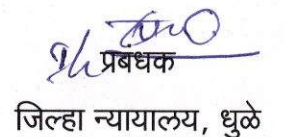 प्रबंधक
जिल्हा न्यायालय, धुळे